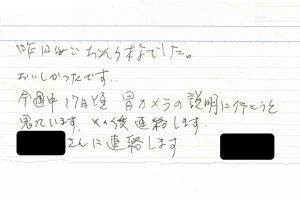 昨日はごちそう様でした。
おいしかったです..
今週中17日頃 胃カメラの説明に行こうと
思っています. その後連絡します.
さんに連絡します